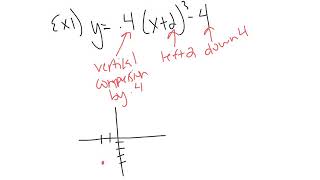 Ex1) y = .4 (x+2)³ - 4
vertical compression by .4
left 2
down 4